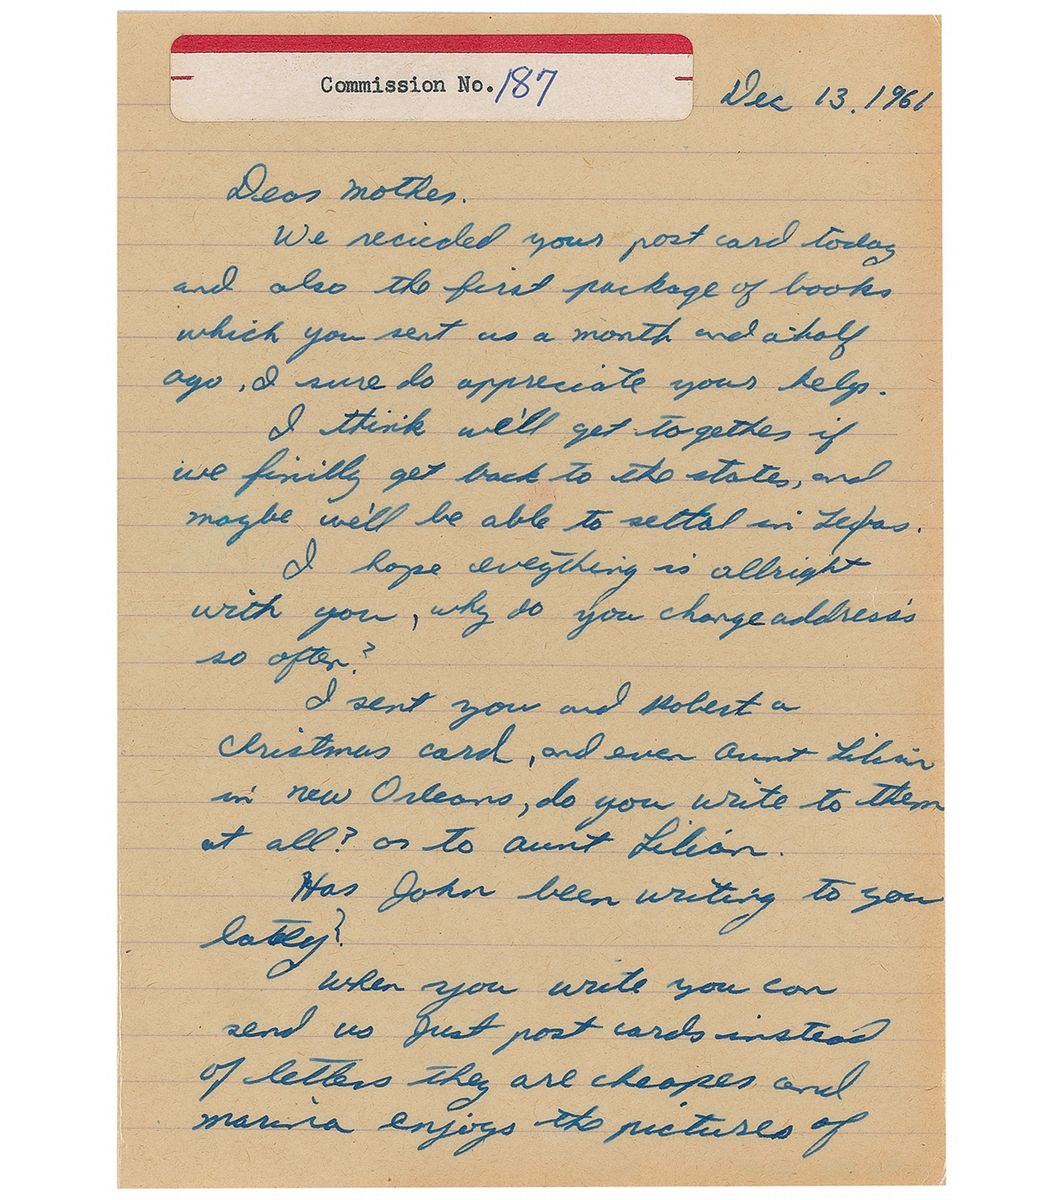 Commission No. 187
Dec 13. 1961
Dear Mother.
We recieded your post card today
and also the first package of books
which you sent us a month and a half
ago, I sure do appreciate your help.
I think we'll get together if
we finilly get back to the states, and
maybe we'll be able to settal in Texas.
I hope eveything is allright
with you, why do you change address's
so often?
I sent you and Robert a
Christmas card, and even Aunt Lilian
in New Orleans, do you write to them
at all? or to Aunt Lilian.
Has John been writing to you
lately?
When you write you can
send us Just post cards instead
of letters they are cheaper and
Marina enjoys the pictures of